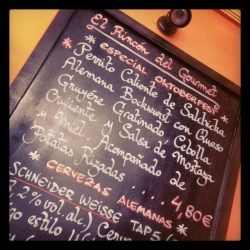 El Rincón del Gourmet
ESPECIAL OKTOBERFEST
* Perrito Caliente de Salchicha
Alemana Bockwurst con Queso
Gruyère Gratinado, Cebolla
Crujiente y Salsa de Mostaza
y Miel. Acompañado de
Patatas Rizadas... 4,80€
* CERVEZAS ALEMANAS *
SCHNEIDER WEISSE TAP5
2% vol. alc) Cerv
o estilo